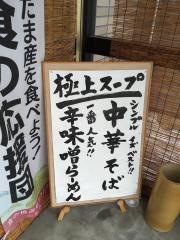 極上スープ
シンプル イズ ベスト!!
中華そば
一番人気!!
辛味噌らーめん
たま産を食べよう!
食の応援団